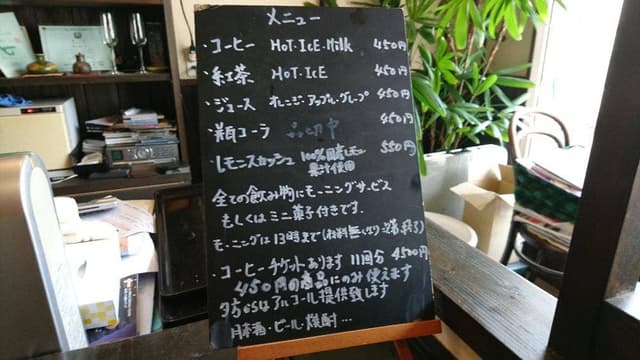 メニュー
・コーヒー HOT・ICE・Milk 450円
・紅茶 HOT・ICE 450円
・ジュース オレンジ・アップル・グレープ 450円
・瓶コーラ 品切中 450円
・レモンスカッシュ 100%国産レモン 550円
果汁使用
全ての飲み物にモーニングサービス
もしくはミニ菓子付きです。
モーニングは13時まで(材料無くなり次第、終了)
・コーヒーチケットあります 11回分 4500円
450円の商品にのみ使えます
夕方からはアルコール提供致します
日本酒・ビール・焼酎…